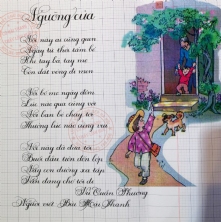 Ngưỡng cửa
Nơi này ai cũng quen
Ngay từ thời tấm bé
Khi tay bà, tay mẹ
Còn dắt vòng đi men
Nơi bố mẹ ngày đêm
Lúc nào qua cũng vội
Nơi bạn bè chạy tới
Thường lúc nào cũng vui
Nơi này đã đưa tôi
Buổi đầu tiên đến lớp
Nay con đường xa tắp
Vẫn đang chờ tôi đi
Vũ Quần Phương
Người viết: Bùi